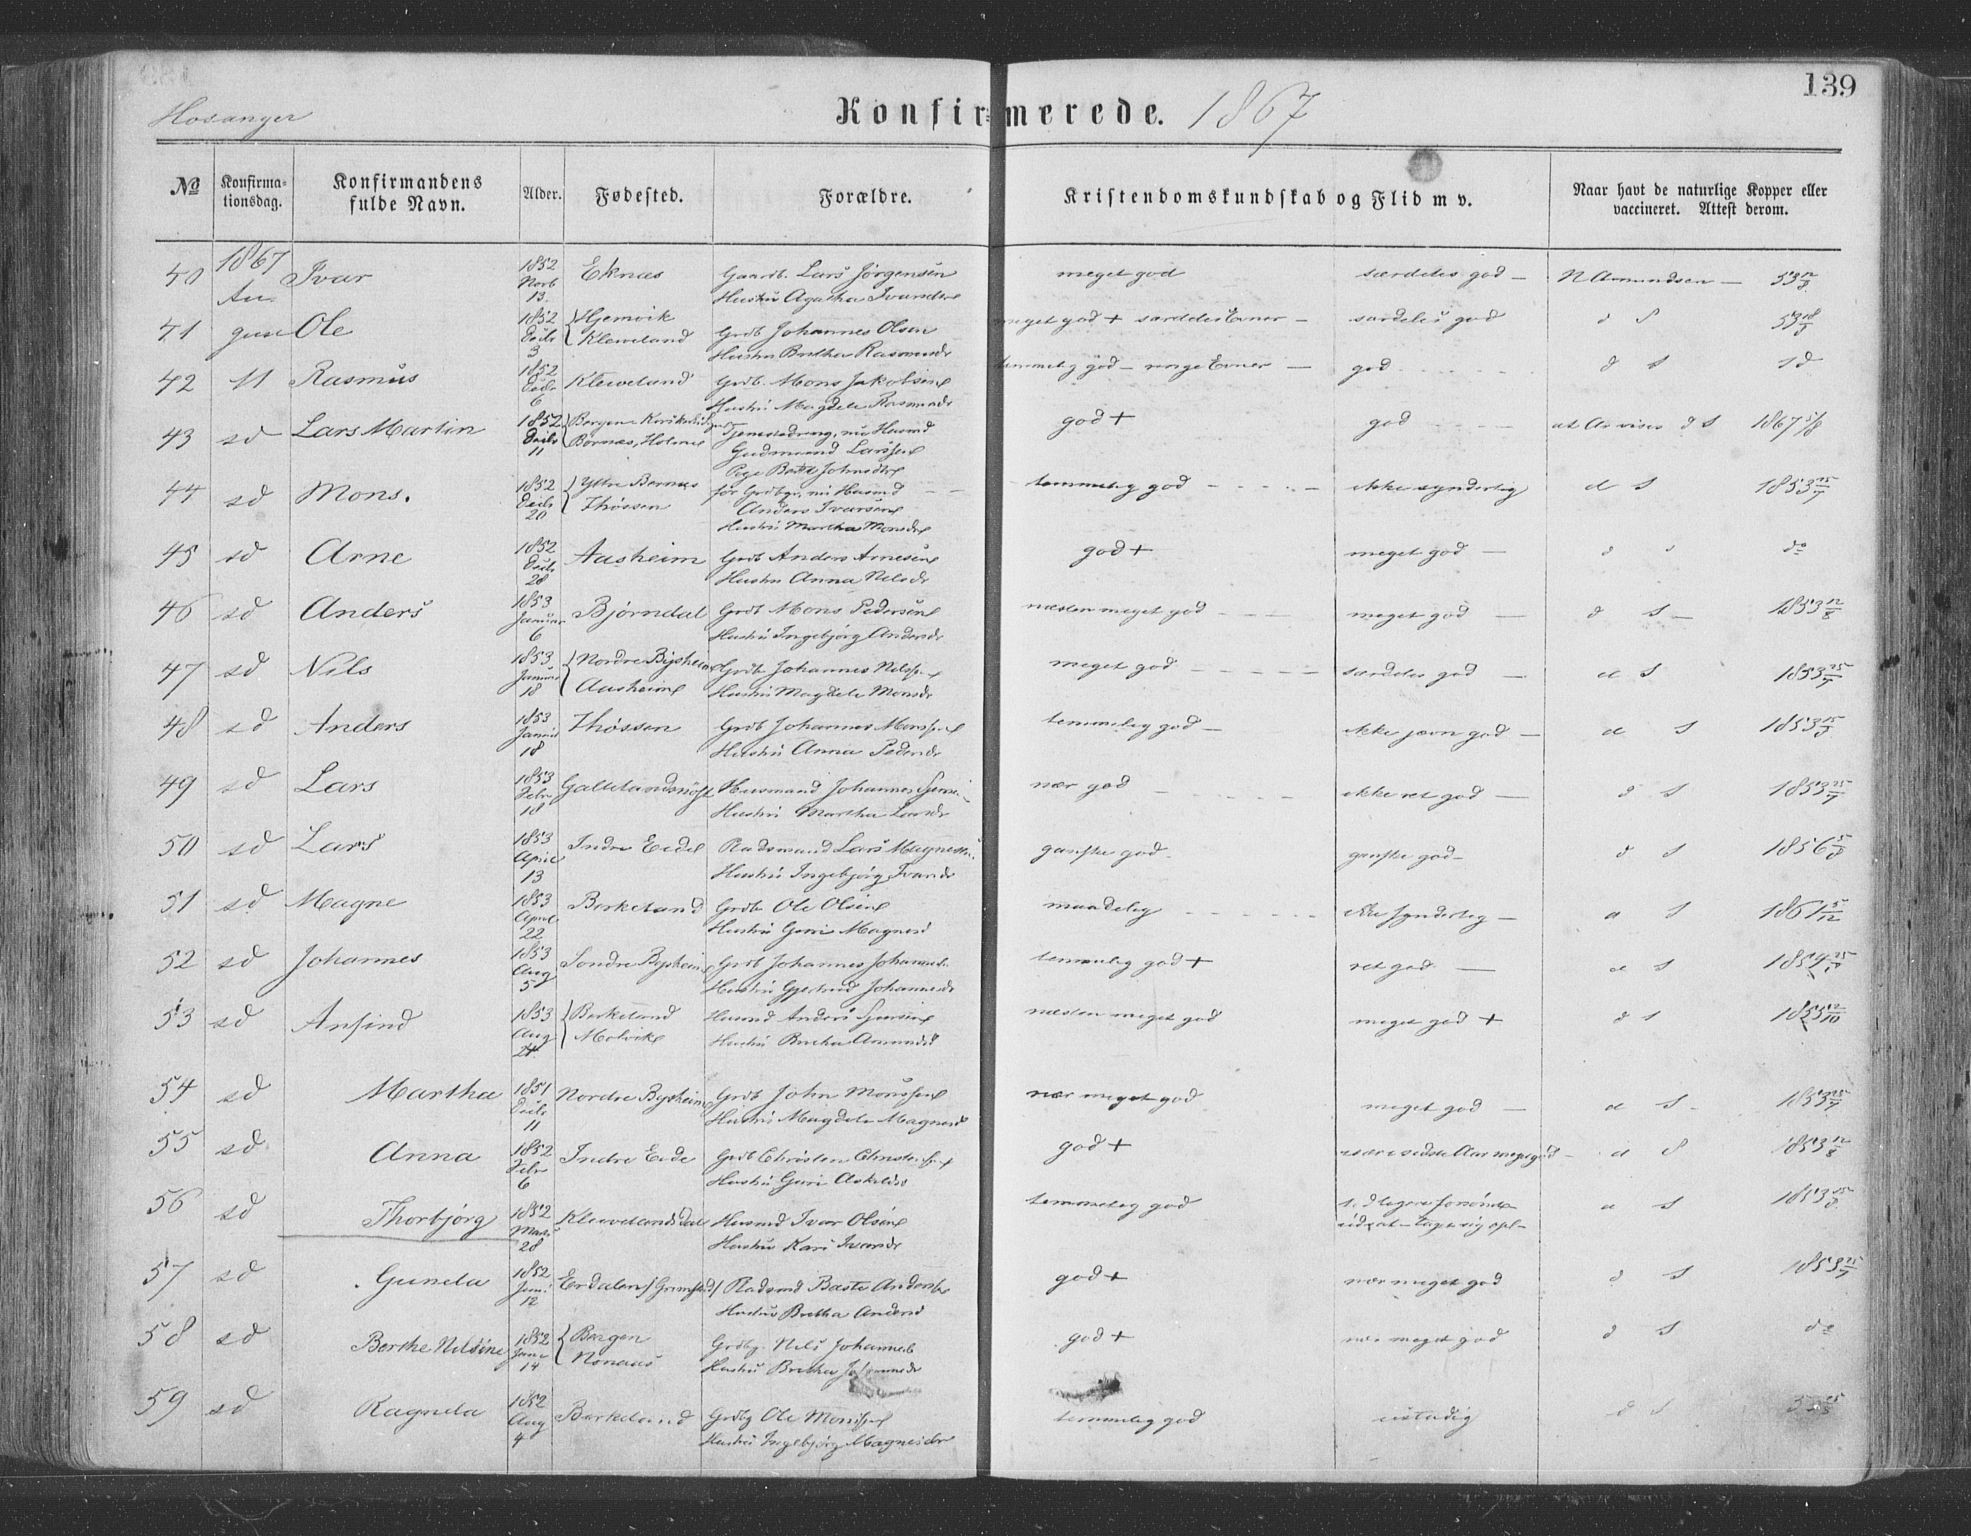 139
Hosanger
Konfirmerede. 1867
No
Konfirma-
tionsdag.
Konfirmandens
fulde Navn.
Alder.
Fødested.
Forældre.
Kristendomskundskab og Flid m v.
Naar havt de naturlige Kopper eller
vaccineret. Attest derom.
40 1867 Ivar 1852 Eknæs Gaardb. Lars Jørgensen meget god særdeles god N Amundsen 53 12/8
Au- 13. Hustru Agatha Ivarsdr
41 gust Ole 1852 Hjemvik Grdb Johannes Olsen meget god + særdeles Evner særdeles god d S
3 Kleiveland Hustru Brtha Rasmusdr
42 11 Rasmus 1852 Kleiveland Grdb. Mons Jakobsen temmelig god - Evner god d S
6 Hustru Magdele Rasmusdr
43 sd Lars Martin 1852 Bergen god + god d S 1867
11 Bornæs, Tjenestedreng, nu Husmd
Gudmund Larssen
Pige Johnsdtr
44 sd Mons. 1852 Ytre Bernæs for Grdbgr. nu Husmd temmelig god ikke synderlig d S 1853 25/7
20 Thössen Anders Ivarsen
Hustru Martha Monsdr
45 sd Arne 1852 Aasheim Grdb Anders Arnesen god + meget god d do
28 Hustru Anna Nilsdr
46 sd Anders 1853 Bjørndal Grdb Mons Pedersen næsten meget god meget god d S 1853 12/8
Januar 6 Hustru Ingebjørg Andersdr
47 sd Nils 1853 Nordre Bysheim Grdb Johannes Nilssen meget god særdeles god d S 1853 25/7
18 Aasheim Hustru Magdele Monsdr
48 sd Anders 1853 Thössen Grdb Johannes Monssen temmelig god ikke jævn god d S 1853
18 Hustru Anna Pedersdr
49 sd Lars 1853 Husmand Johannes nær god ikke ret god d S 1853 25/7
Febr 18 Hustru Martha Larsdr
50 sd Lars 1853 Indre Eide Pladsmand Lars Magnessen ganske god ganske god d S 1856 5/8
April 13 Hustru Ingebjørg Ivarsdr
51 sd Magne 1853 Berkeland Grdb Ole Olsen maadelig ikke synderlig d S 1861 5/12
April 22 Hustru Magnesd
52 sd Johannes 1853 Søndre Bysheim Grdb Johannes Johannes. temmelig god + ret god d S
Aug 5 Hustru Gjertrud Johannesdr
53 sd Anfind 1853 Berkeland Husmd Anders næsten meget god meget god + d S 1853 12/10
Aug Molvik Hustru Brtha Amundsd
54 sd Martha 1851 Nordre Bysheim Grdb John Monssen nær meget god meget god d S 1853 25/7
11 Hustru Magdele Magnesd
55 sd Anna 1852 Indre Eide Grdb Christen god + d S 1853 12/8
Febr 6 Hustru Guri
56 sd Thorbjørg 1852 Kleivelandsdal Husmd Ivar Olsen temmelig god d S 1853
Marts 28 Hustru Kari Ivarsdr
57 sd Gunela 1852 Erdalen / Pladsmd Anders god + nær meget god d S 1853 25/7
Juni 12 Hustru Brtha Andersd
58 sd Berthe Nilsine 1852 Bergen Grdbg. Nils Johannes god + meget god d S do
14 Nonaas Hustru Brtha Johannesdr
59 sd Ragnela 1852 Berkeland Grdbg Ole Monssen temmelig god ustadig d S
Aug 4 Hustru Ingebjørg Magnesdr